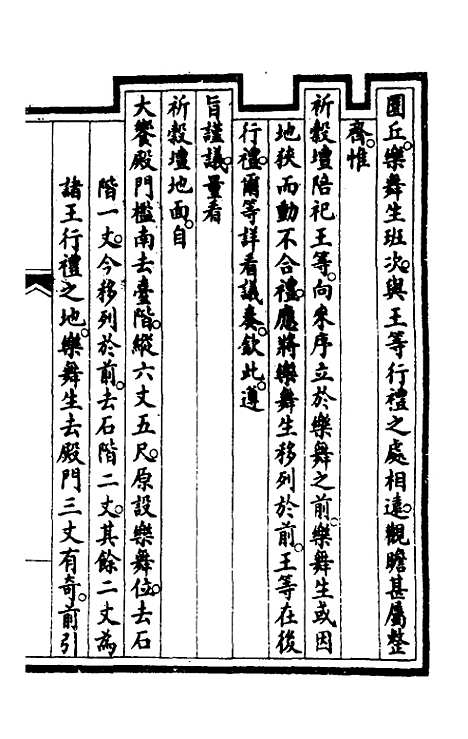 圜丘。樂舞生班次。與王等行禮之處相遠。觀瞻甚屬整
齊。惟
祈穀壇陪祀王等。向來序立於樂舞之前。樂舞生或因
地狹而動不合禮。應將樂舞生移列於前。王等在後
行禮。爾等詳看議奏。欽此。遵
旨謹議。量看
祈穀壇地面。自
大饗殿門檻南去臺階。縱六丈五尺。原設樂舞位。去石
階一丈。今移列於前。去石階二丈。其餘二丈為
諸王行禮之地。樂舞生去殿門三丈有奇。前引